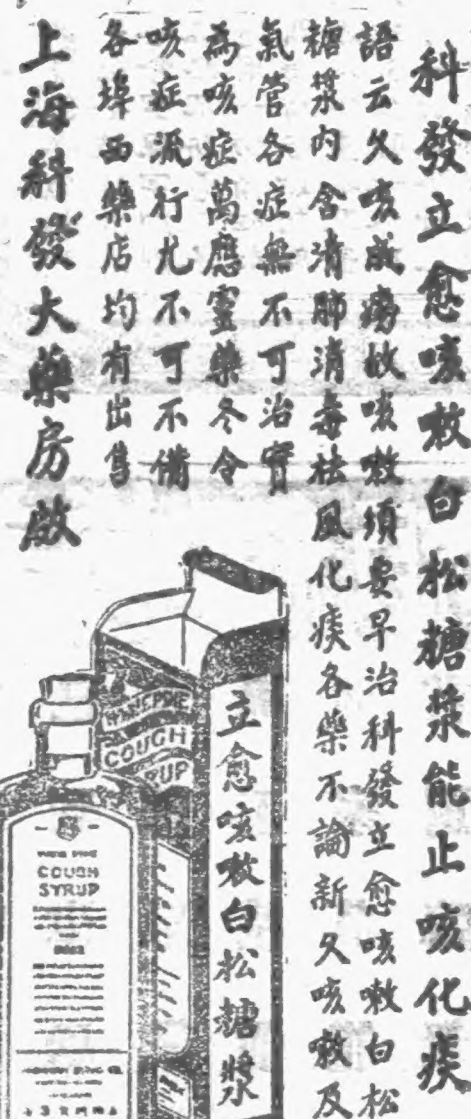 科發立愈咳嗽白松糖漿能止咳化痰
語云久咳成癆故咳嗽須要早治科發立愈咳嗽白松
糖漿內含清肺消毒祛風化痰各藥不論新久咳嗽及
氣管各症無不可治實
為咳症萬應靈藥冬令
咳症流行尤不可不備
各埠西藥店均有出售
上海科發大藥房啟
立愈咳嗽白松糖漿
WHITE PINE
COUGH
SYRUP
WHITE PINE
COUGH
SYRUP